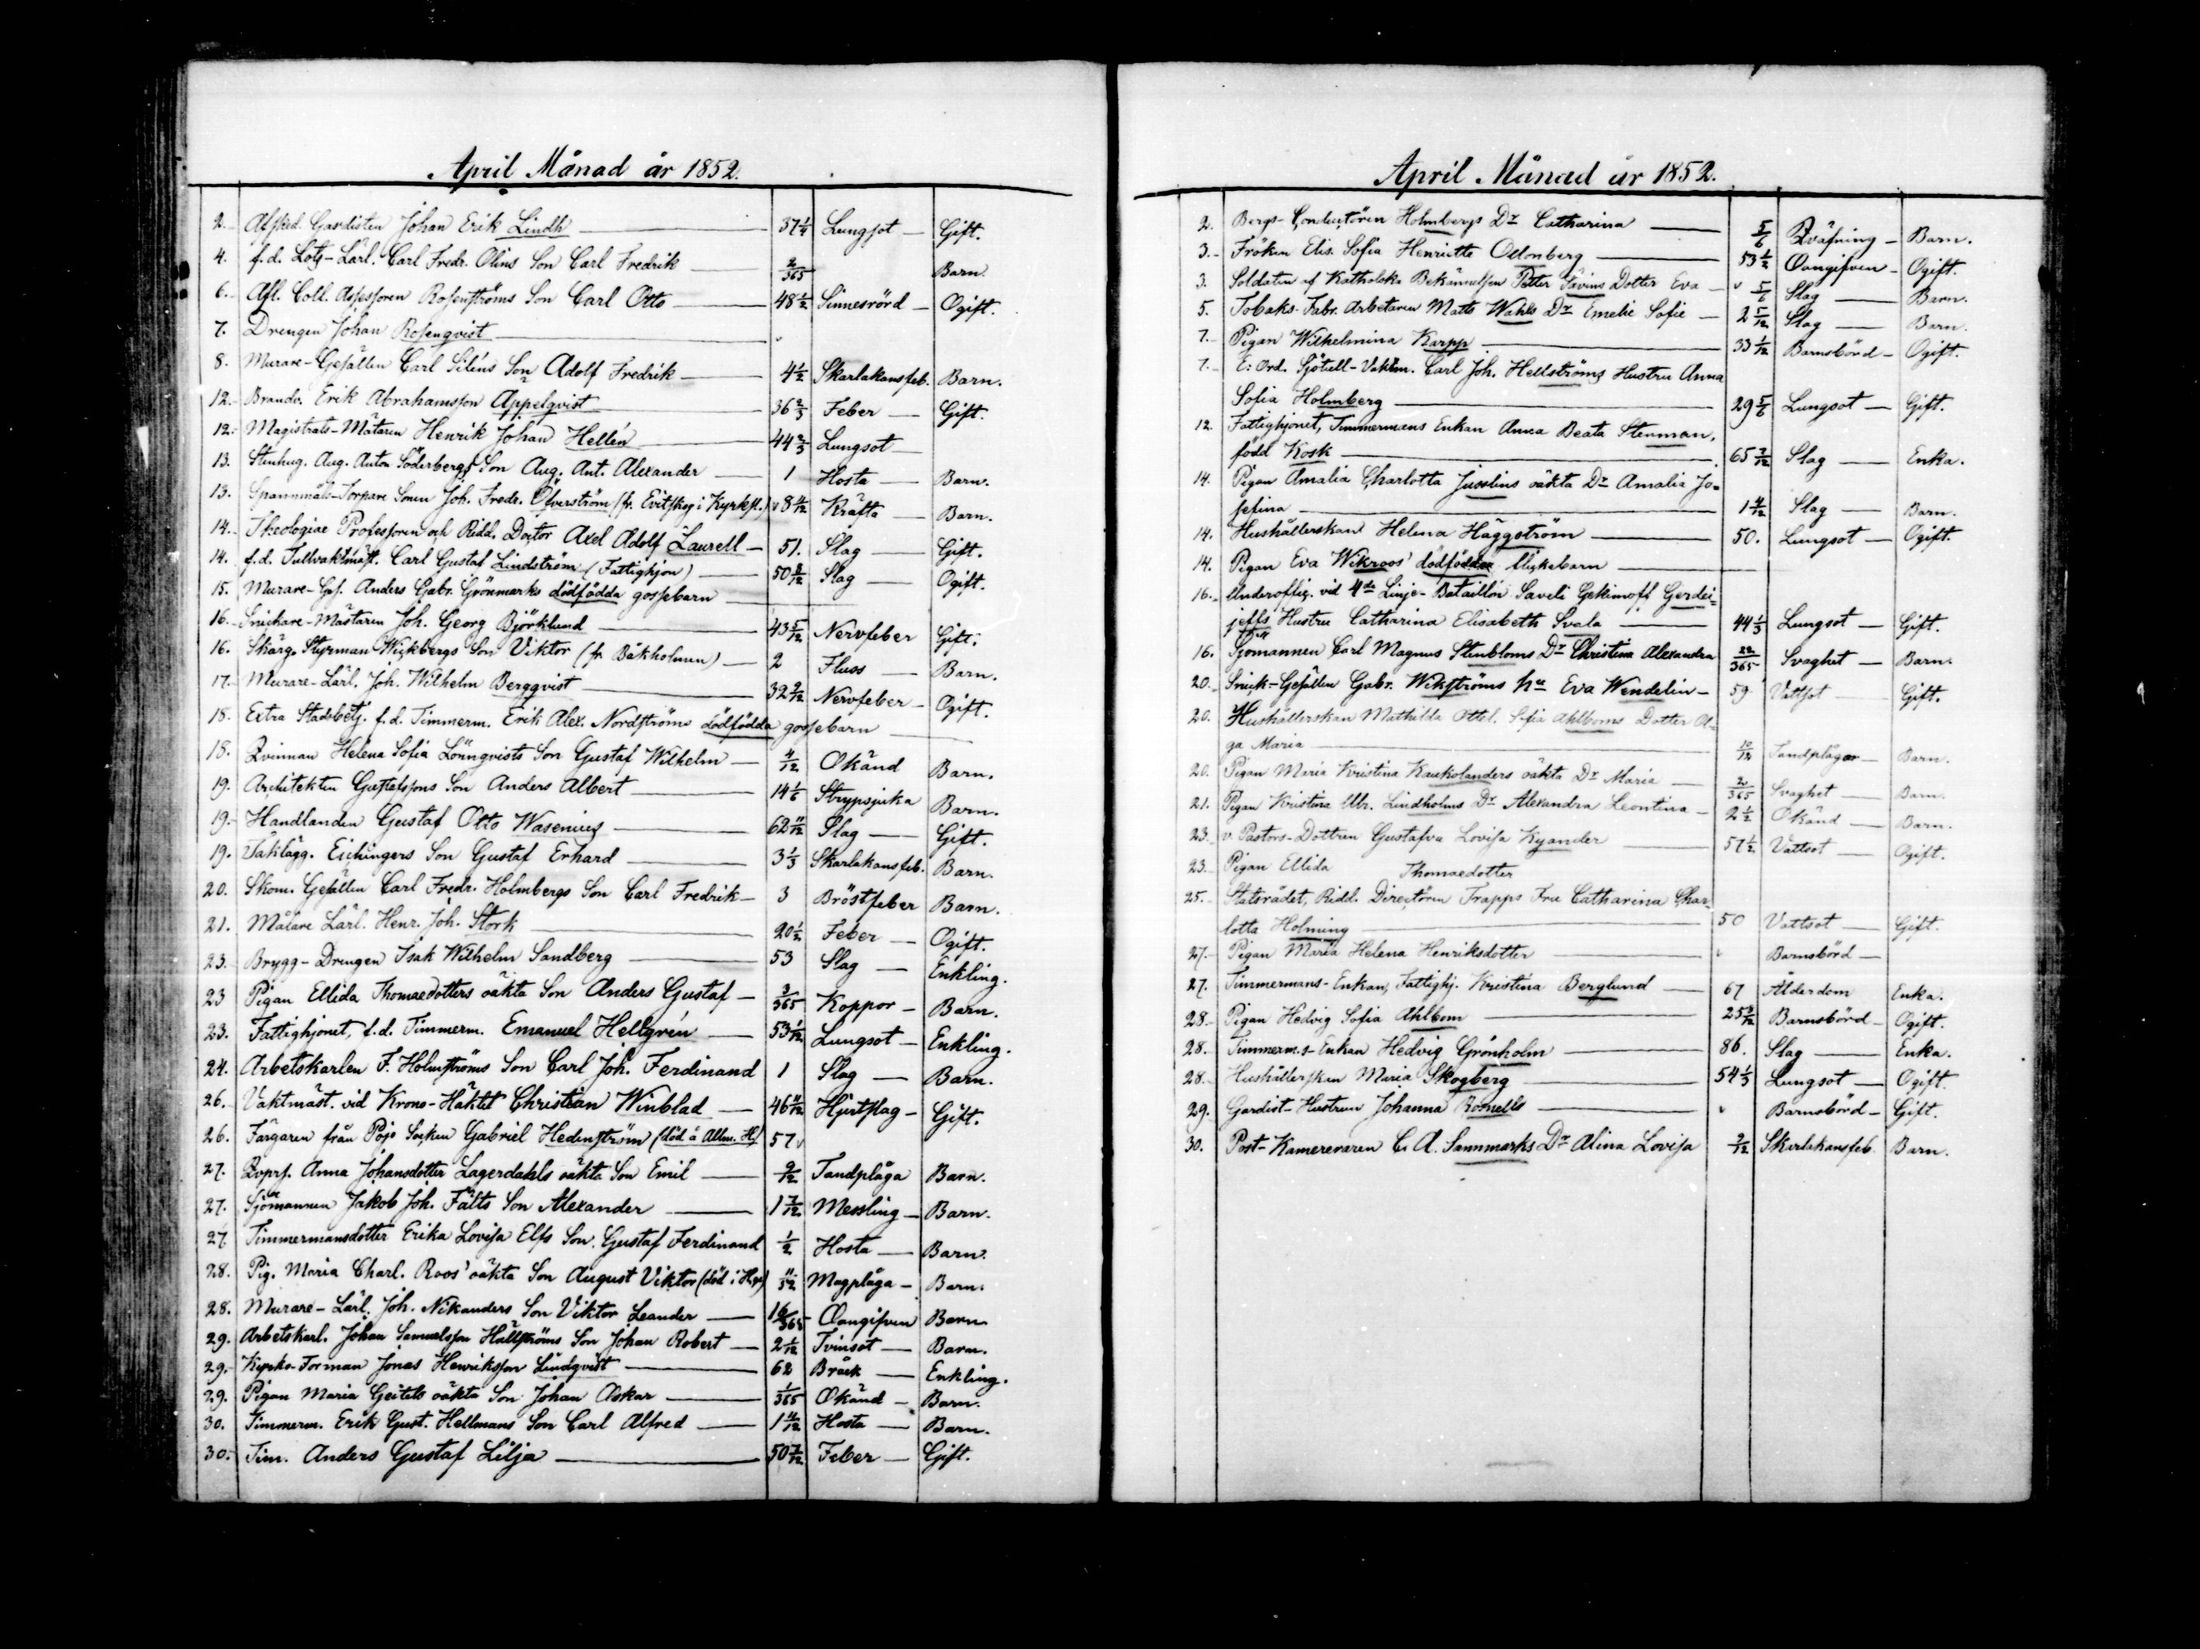 April Månad år 1852.
2. Afsked. Gardisten Johan Erik Lindh 37 1/4 Lungsot Gift.
4. f.d. Lots-Lärl. Carl Fredr. Olins Son Carl Fredrik 2/365 Barn.
6. Afl. Coll. Assessoren Rosenströms Son Carl Otto 48 1/2 Sinnesrörd Ogift.
7. Drengen Johan Rosenqvist
8. Murare-Gesällen Carl Siléns Son Adolf Fredrik 4 1/2 Skarlakansfeb. Barn.
12. Brandv. Erik Abrahamsson Appelqvist 36 2/3 Feber Gift.
12. Magistrats-Mätaren Henrik Johan Hellén 44 2/3 Lungsot
13. Stenhug. Aug. Anton Söderbergs Son Aug. Ant. Alexander 1 Hosta Barn.
13. Spannmåls-Torpare Sonen Joh. Fredr. Öfverström (fr. i Kyrksl.) 8 4/12 Kräfta Barn.
14. Theologiae Professoren och Ridd. Doctor Axel Adolf Laurell 51. Slag Gift.
14. f.d. Tullvaktmäst. Carl Gustaf Lindström (Fattighjon) 50 8/12 Slag Ogift.
15. Murare-Ges. Anders Gabr. Grönmarks dödfödda gossebarn
16. Snickare-Mästaren Joh. Georg Björklund 43 5/12 Nervfeber Gift.
16. Skärg. Styrman Wickbergs Son Viktor (fr. Båkholmen) 2 Fluss Barn.
17. Murare-Lärl. Joh. Wilhelm Bergqvist 32 2/12 Nervfeber Ogift.
18. Extra Stadsbetj. f.d. Timmerm. Erik Alex. Nordströms dödfödda gossebarn
18. Qvinnan Helena Sofia Lönnqvists Son Gustaf Wilhelm 4/12 Okänd Barn.
19. Architekten Gustafssons Son Anders Albert 14 1/6 Strypsjuka Barn.
19. Handlanden Gustaf Otto Wasenius 62 11/12 Slag Gift.
19. Taklägg. Eichingers Son Gustaf Erhard 3 1/3 Skarlakansfeb. Barn.
20. Skom. Gesällen Carl Fredr. Holmbergs Son Carl Fredrik 3 Bröstfeber Barn.
21. Målare Lärl. Henr. Joh. Stork 20 1/2 Feber Ogift.
23. Brygg-Drengen Isak Wilhelm Sandberg 53 Slag Enkling.
23 Pigan Ellida Thomaedotters oäkta Son Anders Gustaf 3/365 Koppor Barn.
23. Fattighjonet, f.d. Timmerm. Emanuel Hellgrén 53 1/12 Lungsot Enkling.
24. Arbetskarlen F. Holmströms Son Carl Joh. Ferdinand 1 Slag Barn.
26. Vaktmäst. vid Krono-Häktet Christian Winblad 46 11/12 Hjertslag Gift.
26. Färgaren från Pojo Socken Gabriel Hedenström (död å Allm. H.) 57
27. Anna Johansdotter Lagerdahls oäkta Son Emil 9/12 Tandplåga Barn.
27. Sjömannen Jakob Joh. Fälts Son Alexander 1 7/12 Messling Barn.
27. Timmermansdotter Erika Lovisa Elfs Son Gustaf Ferdinand 1/2 Hosta Barn.
28. Pig. Maria Charl. Roos' oäkta Son August Viktor (död i ) 11/12 Magplåga Barn.
28. Murare-Lärl. Joh. Nikanders Son Viktor Leander 16/365 Oangifven Barn
29. Arbetskarl. Johan Samuelsson Hällströms Son Johan Robert 2 1/12 Tvinsot Barn.
29. Kyrko-Forman Jonas Henriksson Lindqvist 62 Bråck Enkling.
29. Pigan Maria Geitels oäkta Son Johan Oskar 1/365 Okänd Barn.
30. Timmerm. Erik Gust. Hellmans Son Carl Alfred 1 4/12 Hosta Barn.
30. Tim. Anders Gustaf Lilja 50 7/12 Feber Gift.
April Månad år 1852.
2. Bergs-Conductören Holmbergs Dr Catharina 5/6 Qväfning Barn.
3. Fröken Elis. Sofia Henriette Ollonberg 53 1/2 Oangifven Ogift.
3. Soldaten af Katholska Bekännelsen Petter Savins Dotter Eva 5/6 Slag Barn.
5. Tobaks-Fabr. Arbetaren Matts Wahls Dr Emelie Sofie 2 5/12 Slag Barn.
7. Pigan Wilhelmina Karpp 33 1/12 Barnsbörd Ogift.
7. E. Ord. Sjötull-Vaktm. Carl Joh. Hellströms Hustru Anna
Sofia Holmberg 29 5/6 Lungsot Gift.
12. Fattighjonet, Timmermans Enkan Anna Beata Stenman,
född Kosk 65 7/12 Slag Enka.
14. Pigan Amalia Charlotta Jusslins oäkta Dr Amalia Jo-
sefina 1 4/12 Slag Barn.
14. Hushållerskan Helena Häggström 50. Lungsot Ogift.
14. Pigan Eva Wikroos' dödfödda flickebarn
16. Underoffiz. vid 4de Linje-Bataillon Saveli Gekimoff Gerdei-
jeffs Hustru Catharina Elisabeth Svala 44 1/3 Lungsot Gift.
16. Sjömannen Carl Magnus Stenbloms Dr Christina Alexandra 22/365 Svaghet Barn.
20. Snick-Gesällen Gabr. Wikströms hu Eva Wendelin 59 Vattsot Gift.
20. Hushållerskan Mathilda Ottil. Sofia Ahlboms Dotter Ol-
ga Maria 10/12 Tandplågor Barn.
20. Pigan Maria Kristina Kaukolanders oäkta Dr Maria 2/365 Svaghet Barn.
21. Pigan Kristina Ulr. Lindholms Dr Alexandra Leontina 2 1/2 Okänd Barn.
23. v. Pastors-Dottren Gustafva Lovisa Kyander 57 1/2 Vattsot Ogift.
23. Pigan Ellida Thomaedotter
25. Statsrådet, Ridd. Directören Trapps Fru Catharina Char-
lotta Holming 50 Vattsot Gift.
27. Pigan Maria Helena Henriksdotter Barnsbörd
27. Timmermans-Enkan, Fattighj. Kristina Berglund 67 Ålderdom Enka.
28. Pigan Hedvig Sofia Ahlbom 25 3/12 Barnsbörd Ogift.
28. Timmerm.s-Enkan Hedvig Grönholm 86. Slag Enka.
28. Hushållerskan Maria Skogberg 54 1/3 Lungsot Ogift.
29. Gardist-Hustrun Johanna Romells Barnsbörd Gift.
30. Post-Kamereraren C. A. Sanmarks Dr Alina Lovisa 9/12 Skarlakansfeb. Barn.